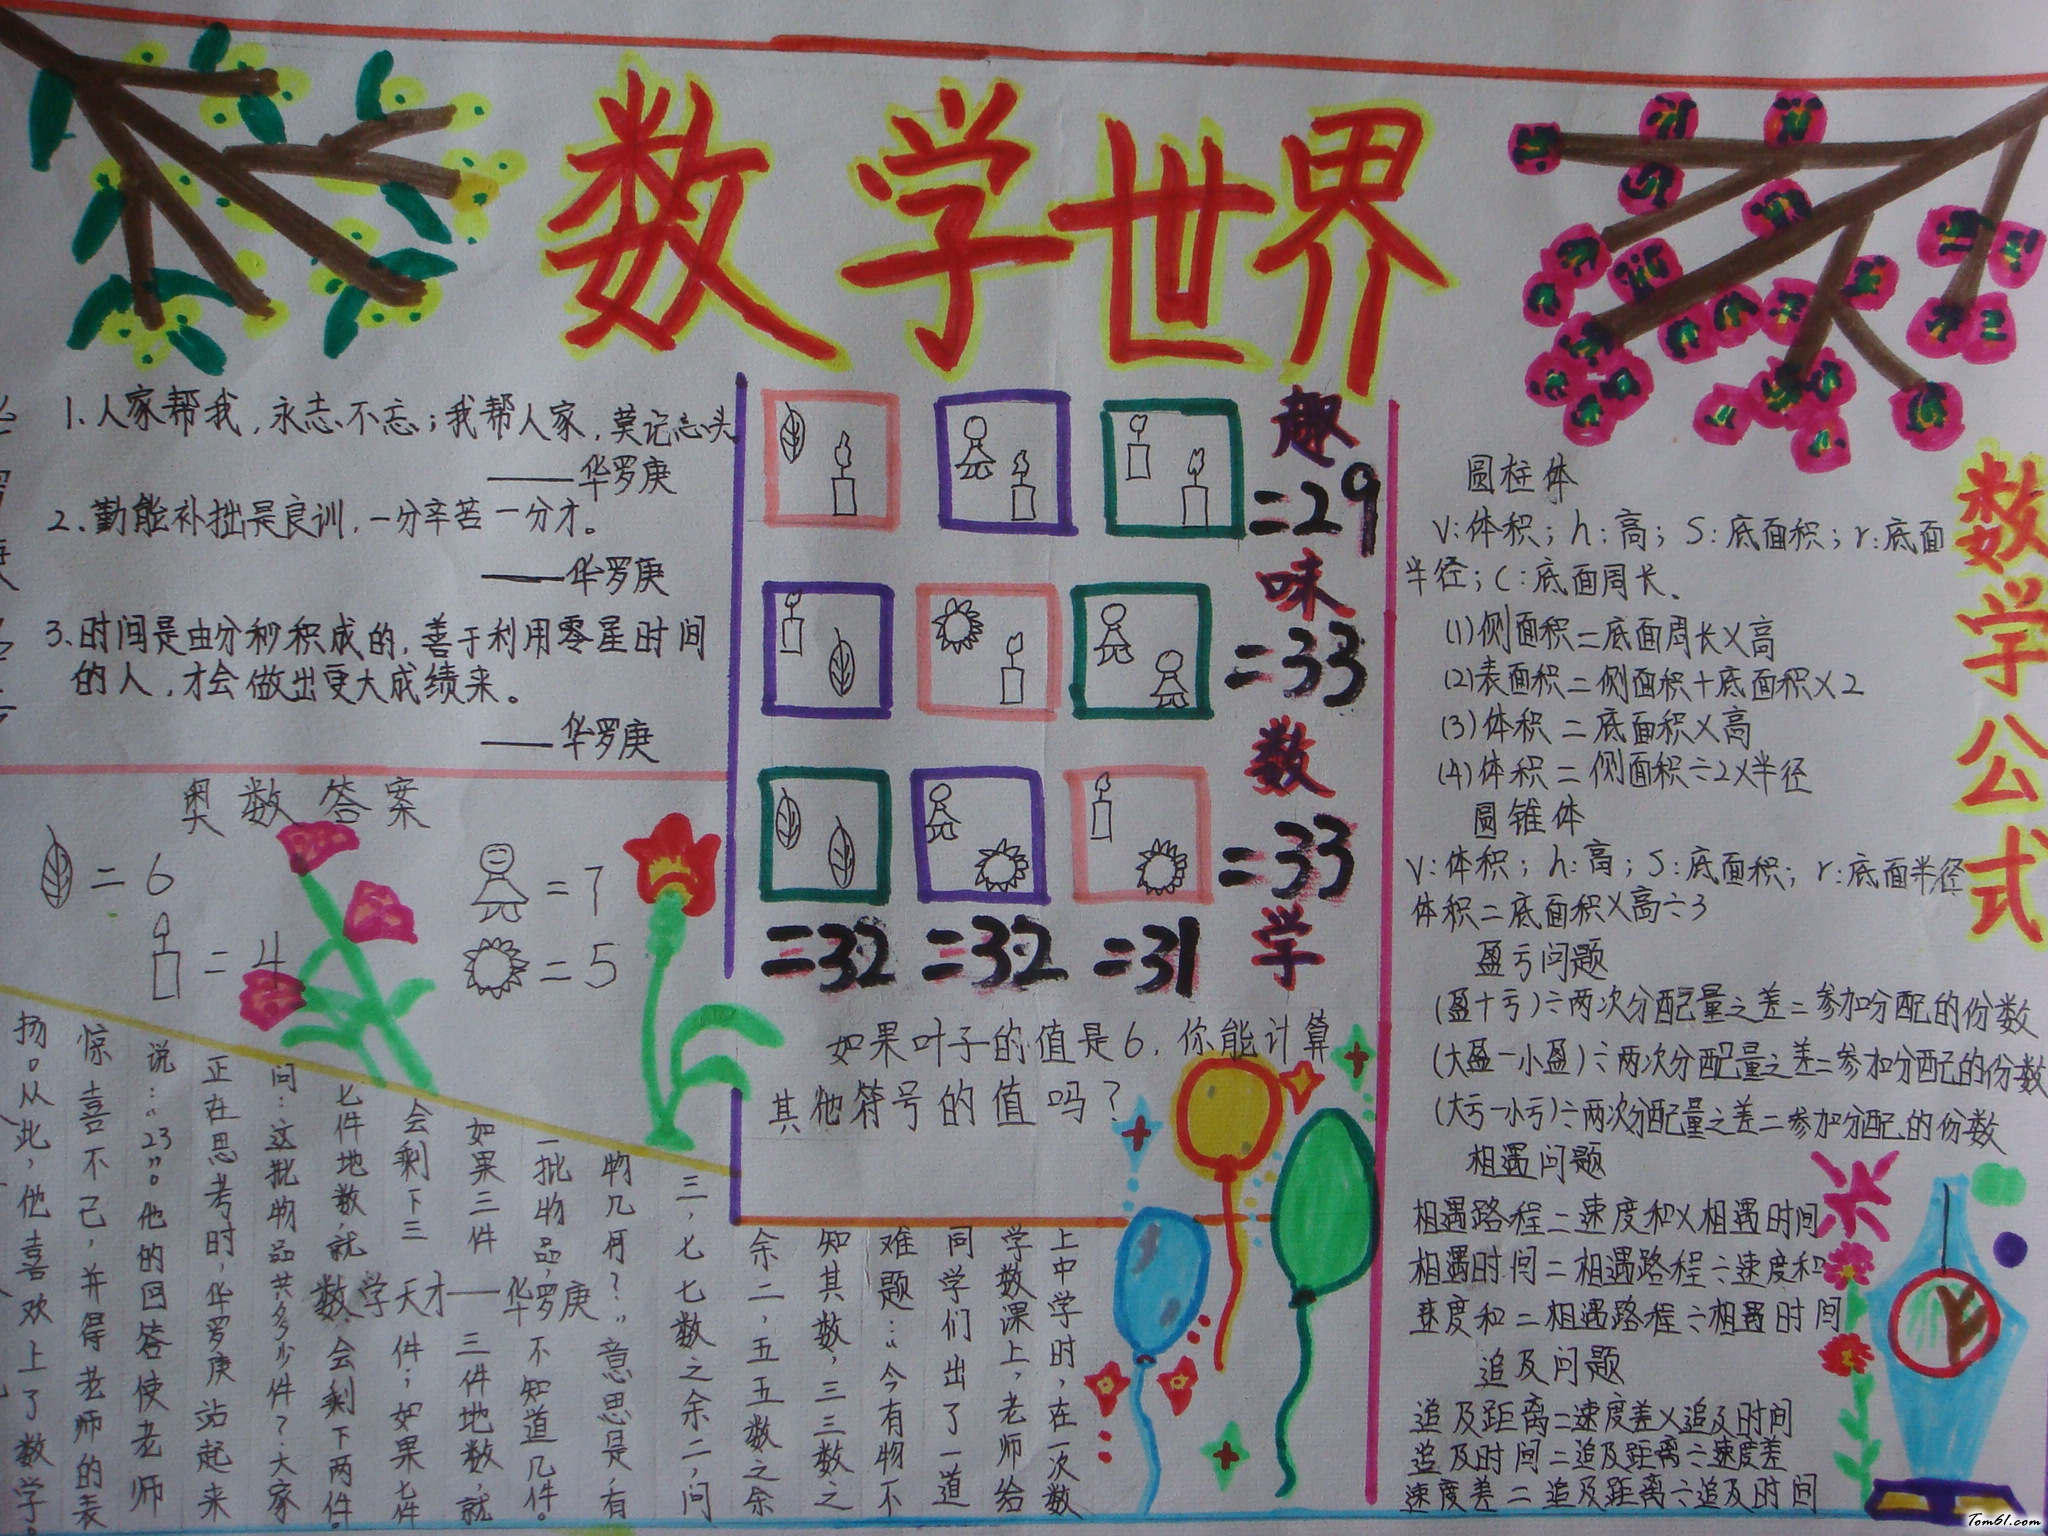 数学世界
1.人家帮我,永志不忘;我帮人家,莫记心头
——华罗庚
2.勤能补拙是良训,一分辛苦一分才。
——华罗庚
3.时间是由分秒积成的,善于利用零星时间
的人,才会做出更大成绩来。
——华罗庚
奥数答案
=6
=7
=4
=5
趣味数学
=29
=33
=33
=32 =32 =31
如果叶子的值是6,你能计算
其他符号的值吗?
数学天才——华罗庚
上中学时,在一次数
学数课上,老师给
同学们出了一道
难题:“今有物不
知其数,三三数之
余二,五五数之余
三,七七数之余二,问
物几何?”意思是,有
一批物品,不知道几件。
如果三件三件地数,就
会剩下三件;如果七件
七件地数,就会剩下两件。
问:这批物品共多少件?大家
正在思考时,华罗庚站起来
说:“23”。他的回答使老师
惊喜不已,并得老师的表
扬。从此,他喜欢上了数学。
数学公式
圆柱体
V:体积;h:高;S:底面积;r:底面
半径;C:底面周长、
(1)侧面积=底面周长×高
(2)表面积=侧面积+底面积×2
(3)体积=底面积×高
(4)体积=侧面积÷2×半径
圆锥体
V:体积;h:高;S:底面积;r:底面半径
体积=底面积×高÷3
盈亏问题
(盈+亏)÷两次分配量之差=参加分配的份数
(大盈-小盈)÷两次分配量之差=参加分配的份数
(大亏-小亏)÷两次分配量之差=参加分配的份数
相遇问题
相遇路程=速度和×相遇时间
相遇时间=相遇路程÷速度和
速度和=相遇路程÷相遇时间
追及问题
追及距离=速度差×追及时间
追及时间=追及距离÷速度差
速度差=追及距离÷追及时间
Tom61.com